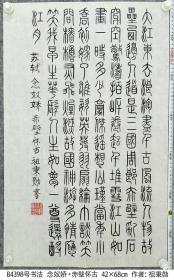 大江東去浪淘盡千古風流人物故
壘西邊人道是三國周郎赤壁亂石
穿空驚濤拍岸卷起千堆雪江山如
畫一時多少豪傑遙想公瑾當年小
喬初嫁了雄姿英發羽扇綸巾談笑
間檣櫓灰飛煙滅故國神游多情應
笑我早生華髮人生如夢一尊還酹
江月 蘇軾 念奴嬌 赤壁懷古 祖東勛書
B4398号书法 念奴娇•赤壁怀古 42×68cm 作者: 祖東勋